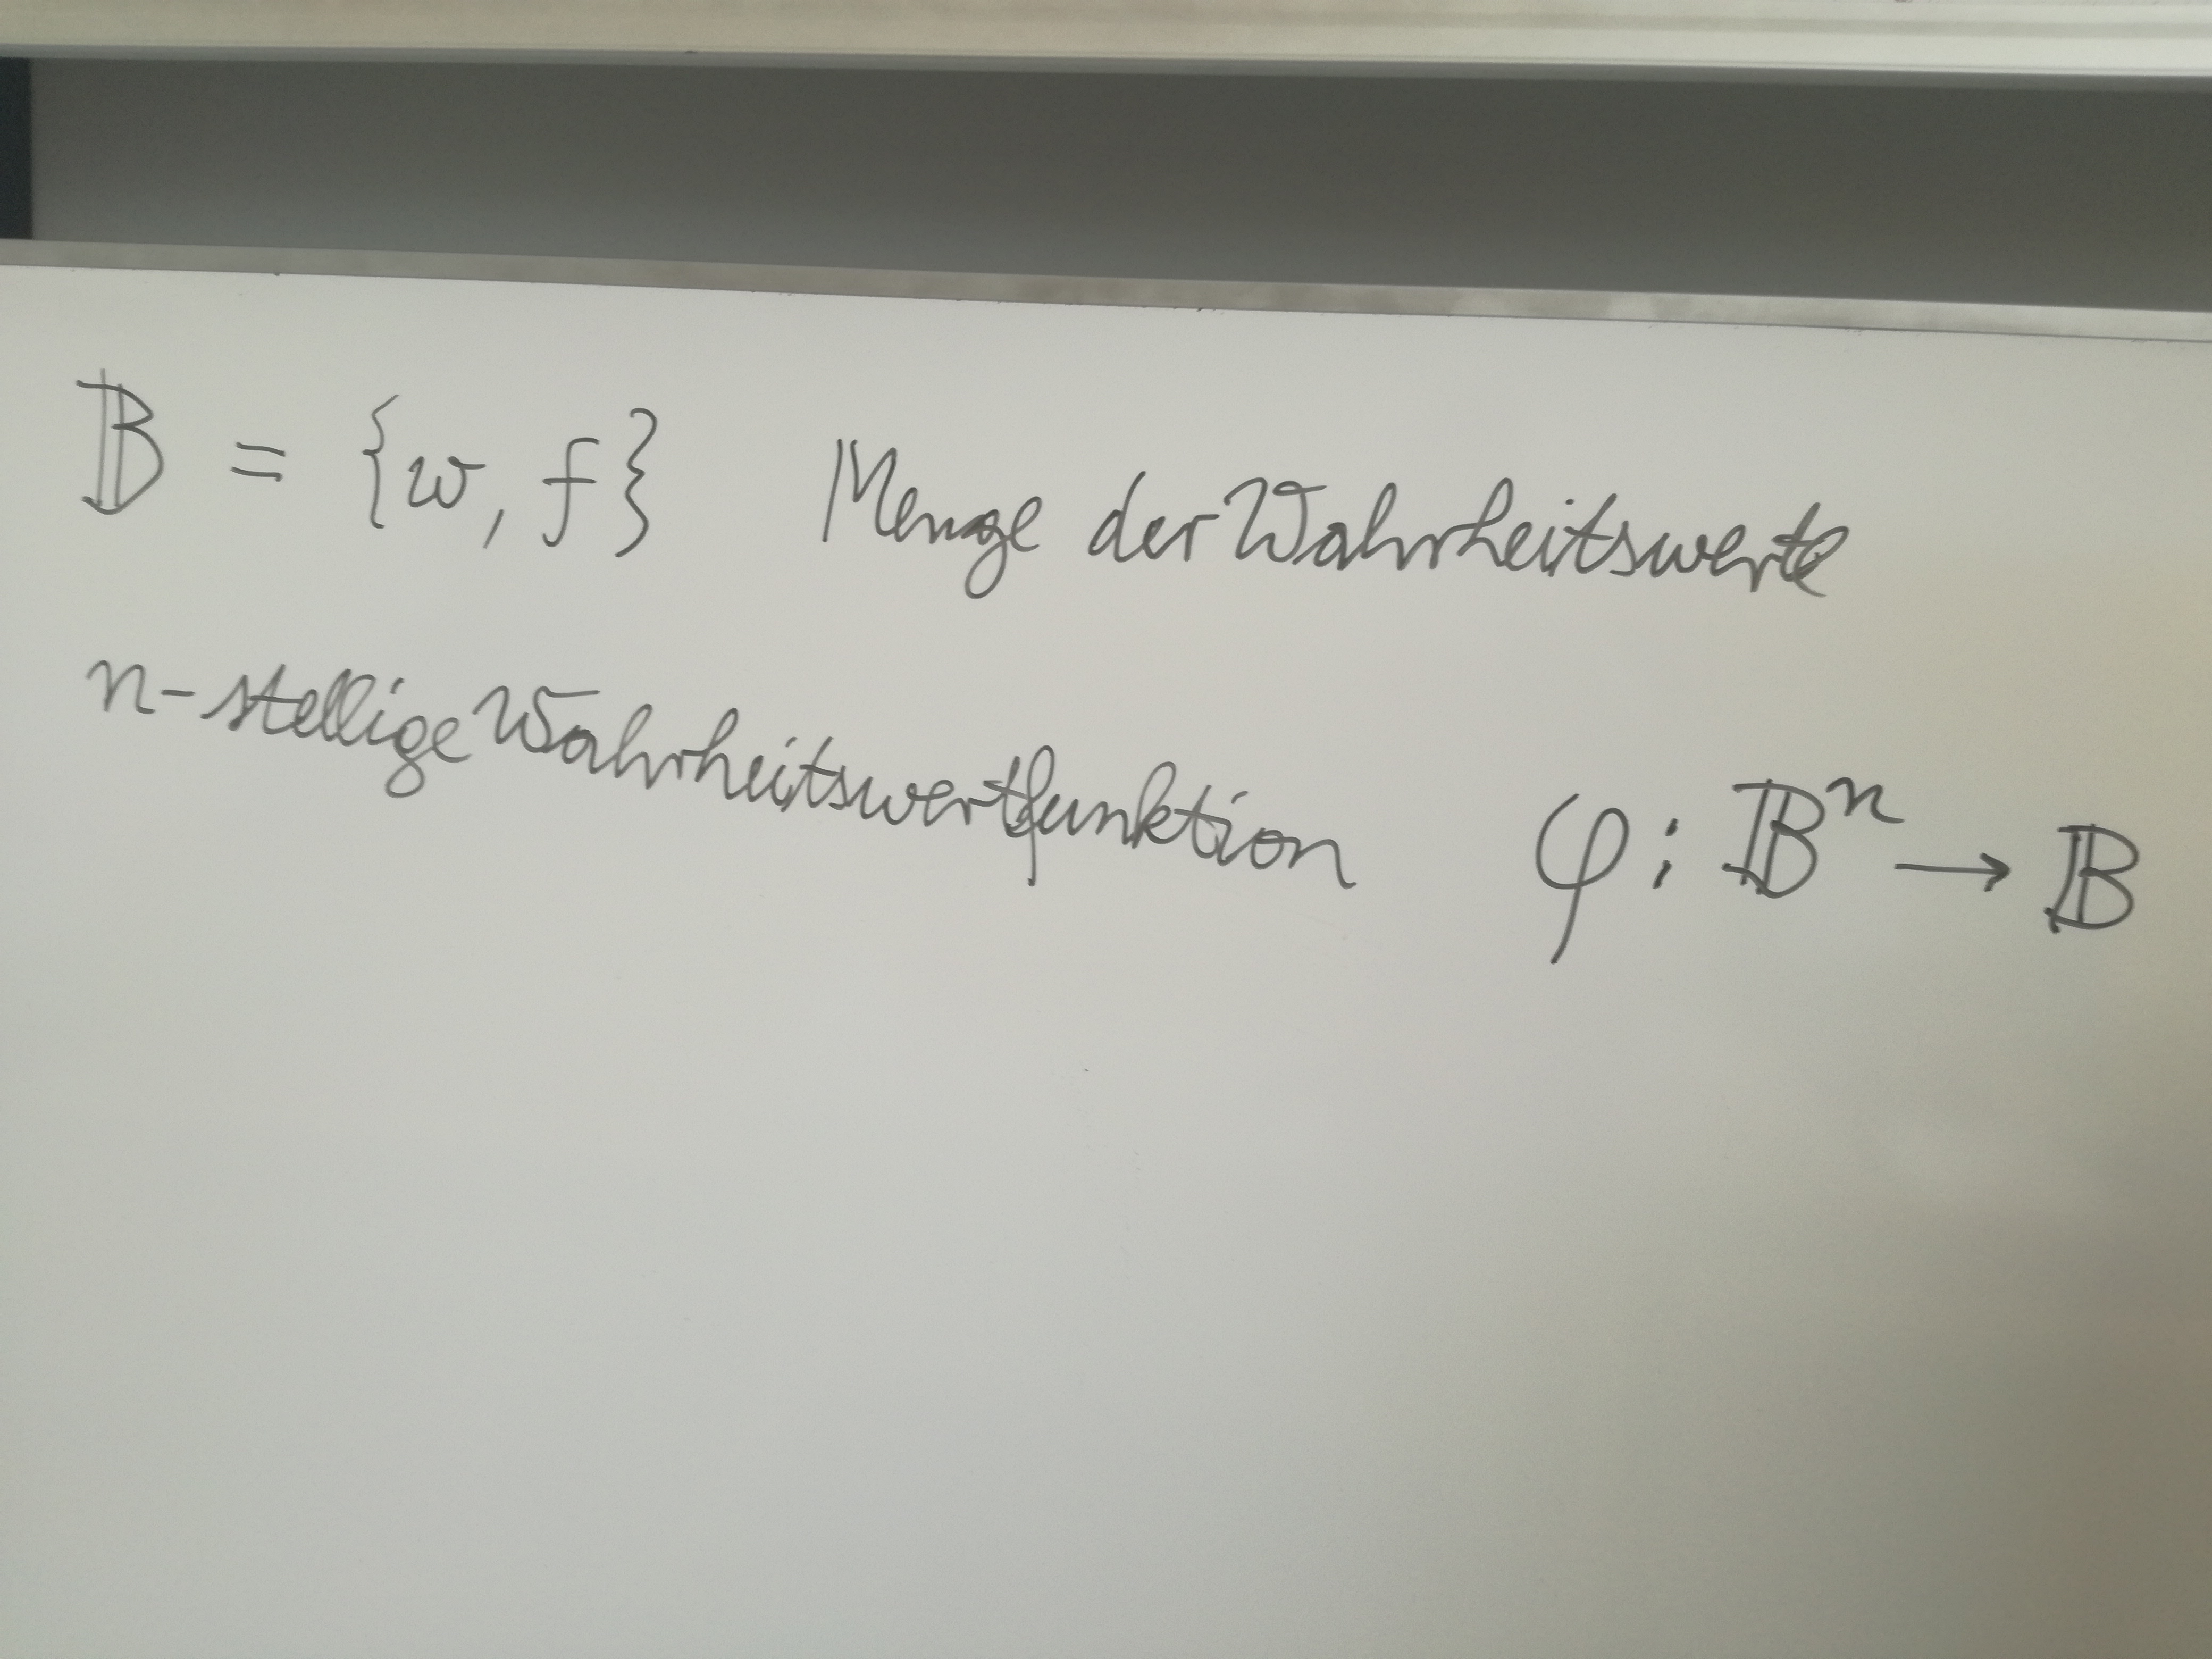 𝔹 = {w, f} Menge der Wahrheitswerte
n-stellige Wahrheitswertfunktion φ: 𝔹ⁿ → 𝔹